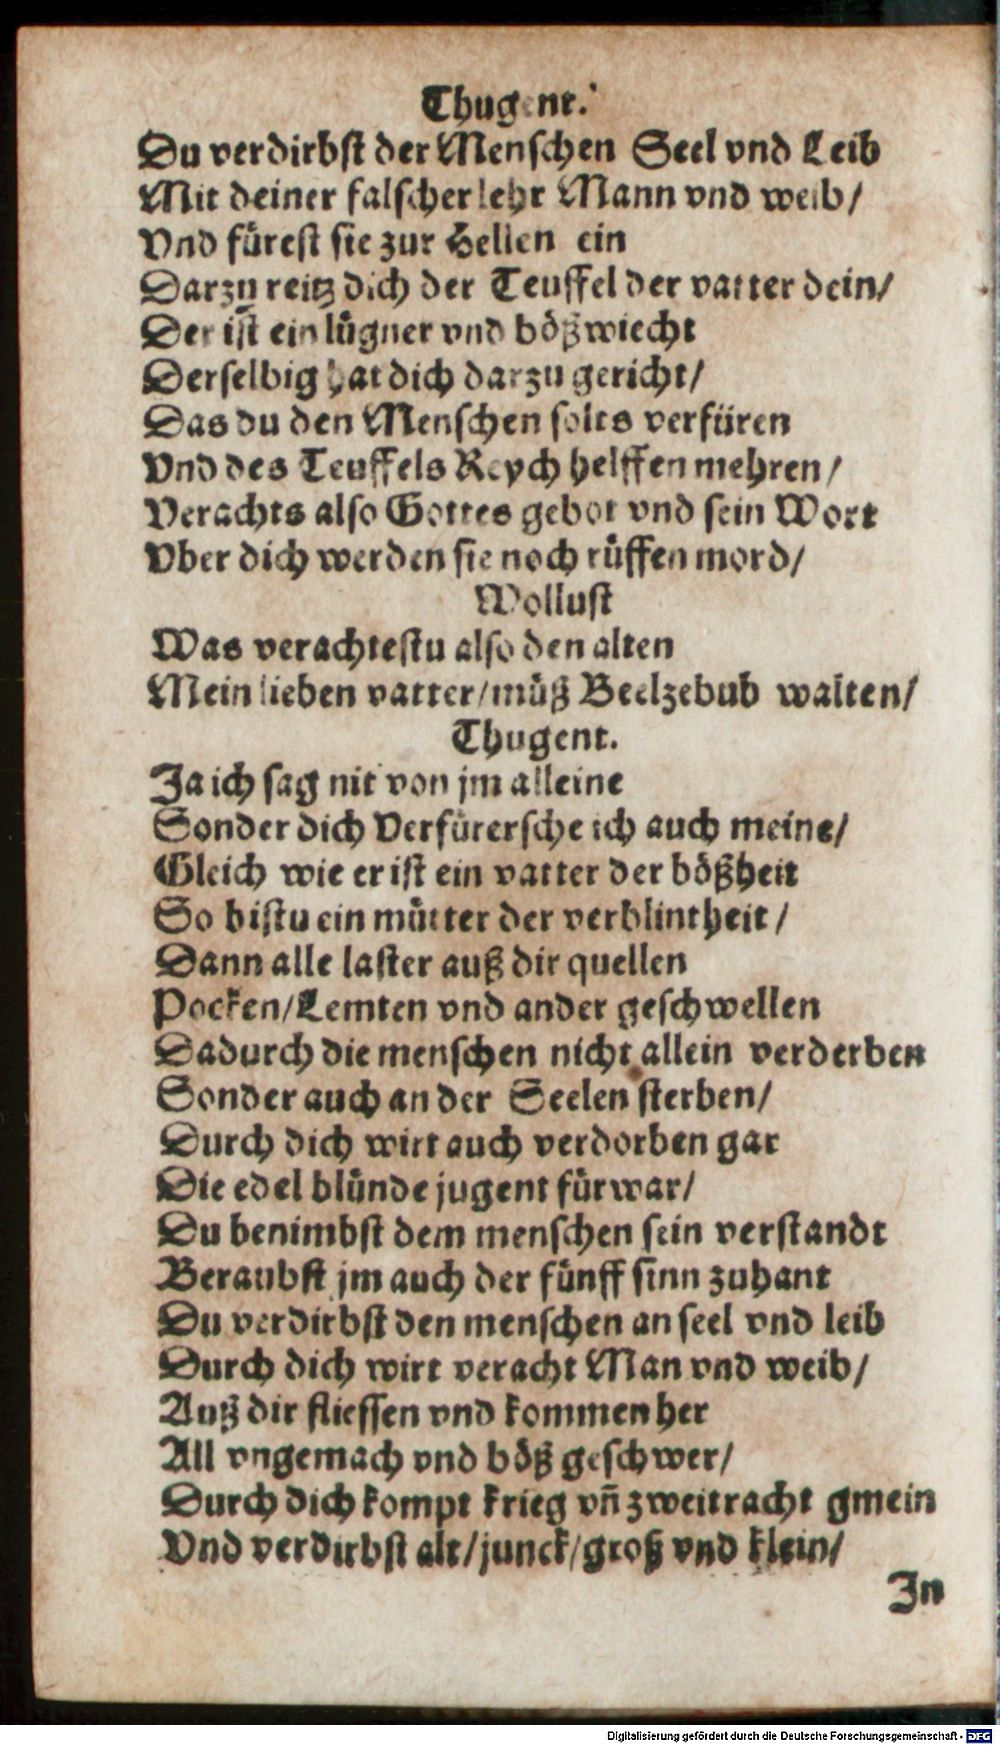 Thugent.
Du verdirbst der Menschen Seel vnd Leib
Mit deiner falscher lehr Mann vnd weib/
Vnd fürest sie zur Hellen ein
Darzu reitz dich der Teuffel der vatter dein/
Der ist ein lügner vnd bößwiecht
Derselbig hat dich darzu gericht/
Das du den Menschen solts verfüren
Vnd des Teuffels Reych helffen mehren/
Verachts also Gottes gebot vnd sein Wort
Vber dich werden sie noch rüffen mord/
Wollust
Was verachtestu also den alten
Mein lieben vatter/müß Beelzebub walten/
Thugent.
Ja ich sag nit von jm alleine
Sonder dich Verfürersche ich auch meine/
Gleich wie er ist ein vatter der bößheit
So bistu ein mütter der verblintheit/
Dann alle laster auß dir quellen
Pocken/Lemten vnd ander geschwellen
Dadurch die menschen nicht allein verderben
Sonder auch an der Seelen sterben/
Durch dich wirt auch verdorben gar
Die edel blünde jugent fürwar/
Du benimbst dem menschen sein verstandt
Beraubst jm auch der fünff sinn zuhant
Du verdirbst den menschen an seel vnd leib
Durch dich wirt veracht Man vnd weib/
Auß dir fliessen vnd kommen her
All vngemach vnd böß geschwer/
Durch dich kompt krieg vñ zweitracht gmein
Vnd verdirbst alt/junck/groß vnd klein/
In
Digitalisierung gefördert durch die Deutsche Forschungsgemeinschaft - DFG